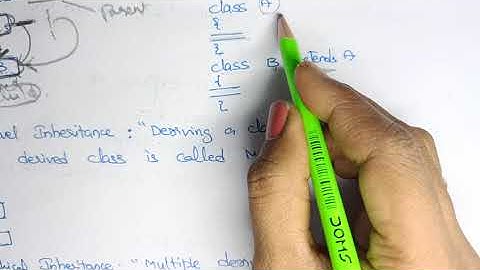 parent
class A
{
}
class B extends A
{
}
Inheritance: "Deriving a
derived class is called
Inheritance: "Multiple
DOMS